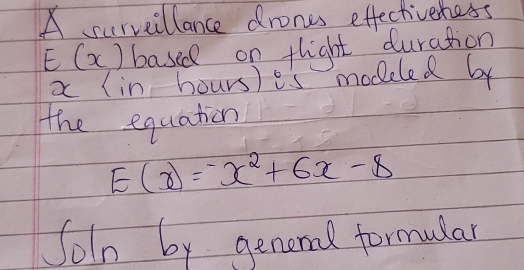 A surveillance drones effectiveness
E(x) based on flight duration
x (in hours) is modeled by
the equation
E(x) = -x² + 6x - 8
Soln by general formular